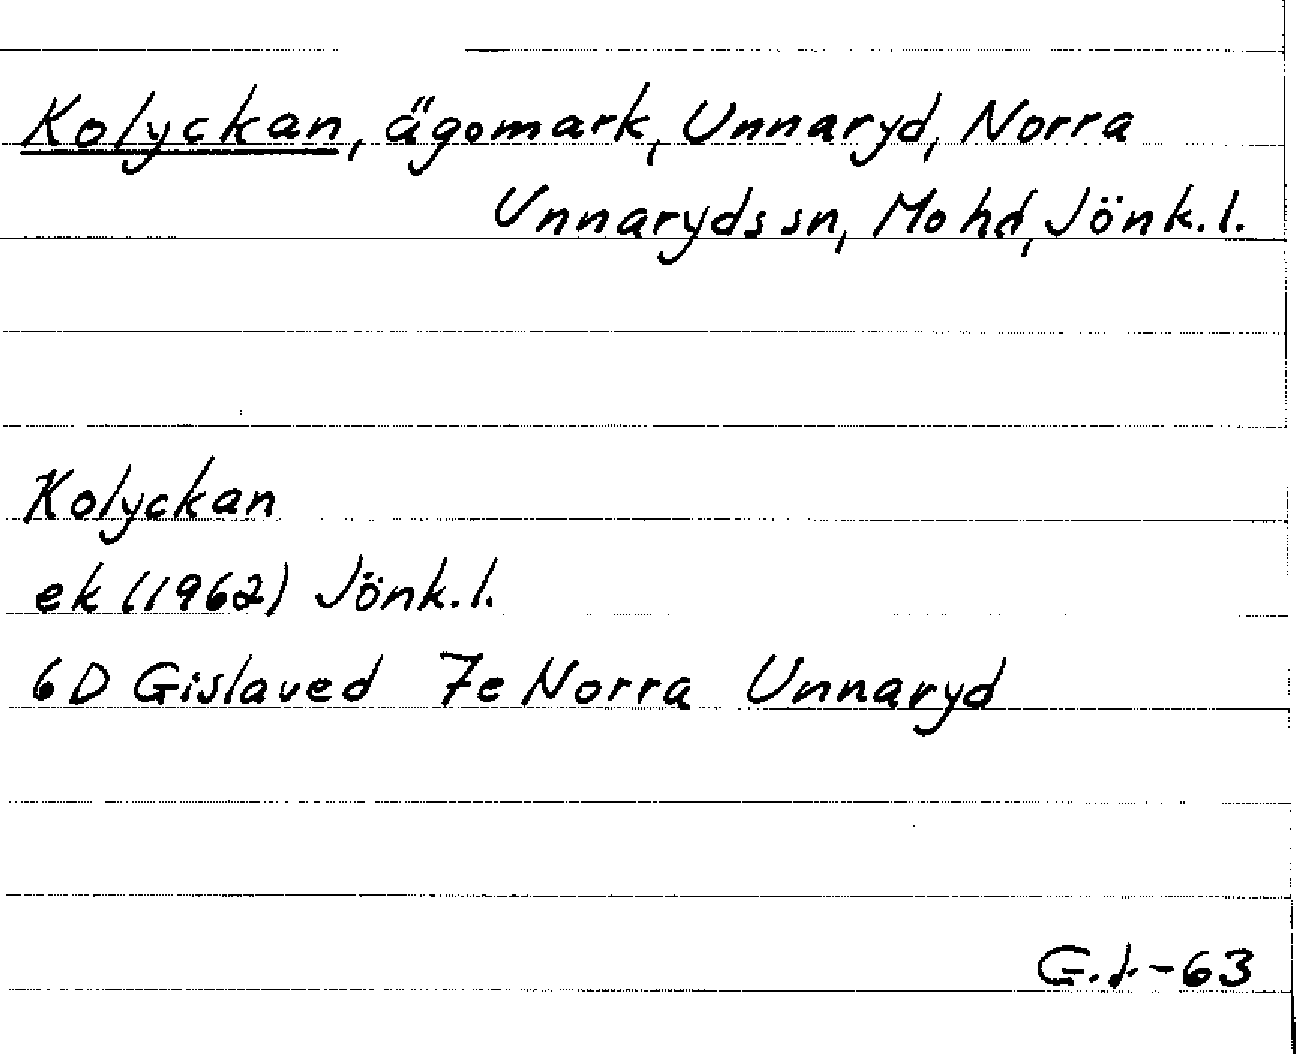 Kolyckan, ägomark, Unnaryd, Norra
Unnaryds sn, Mo hd, Jönk.l.
Kolyckan
ek (1962) Jönk.l.
6D Gislaved 7e Norra Unnaryd
-63